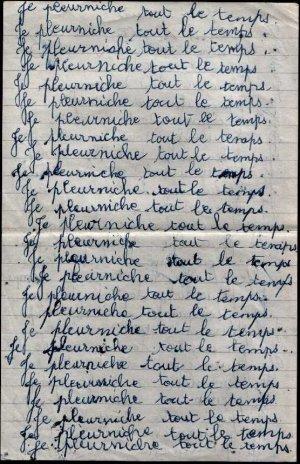 Je pleurniche tout le temps.
Je pleurniche tout le temps.
Je pleurniche tout le temps.
Je pleurniche tout le temps.
Je pleurniche tout le temps.
Je pleurniche tout le temps.
Je pleurniche tout le temps.
Je pleurniche tout le temps.
Je pleurniche tout le temps.
Je pleurniche tout le temps.
Je pleurniche tout le temps.
Je pleurniche tout le temps.
Je pleurniche tout le temps.
Je pleurniche tout le temps
Je pleurniche tout le temps
Je pleurniche tout le temps
Je pleurniche tout le temps.
Je pleurniche tout le temps.
Je pleurniche tout le temps.
Je pleurniche tout le temps.
Je pleurniche tout le temps.
Je pleurniche tout le temps.
Je pleurniche tout le temps
Je pleurniche tout le temps.
Je pleurniche tout le temps.
Je pleurniche tout le temps.